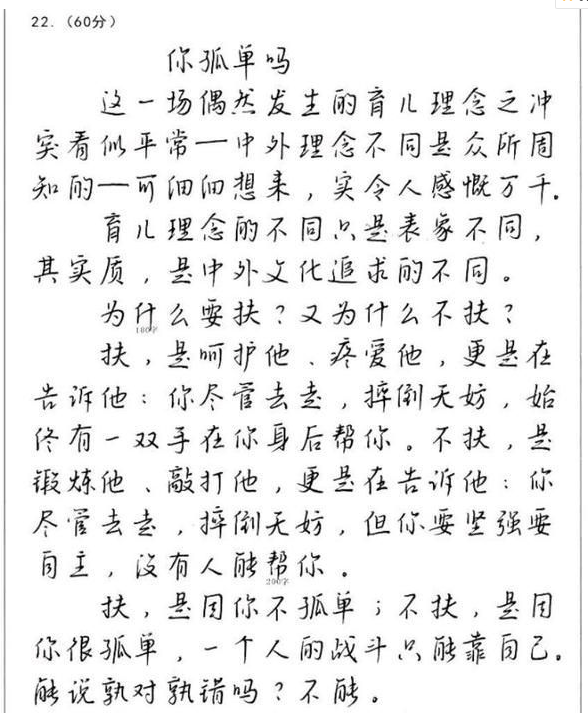 22.（60分）
你孤单吗
这一场偶然发生的育儿理念之冲
突看似平常一一中外理念不同是众所周
知的一一可细细想来，实令人感慨万千。
育儿理念的不同只是表象不同，
其实质，是中外文化追求的不同。
为什么要扶？又为什么不扶？
100字
扶，是呵护他、疼爱他，更是在
告诉他：你尽管去走，摔倒无妨，始
终有一双手在你身后帮你。不扶，是
锻炼他、敲打他，更是在告诉他：你
尽管去走，摔倒无妨，但你要坚强要
自主，没有人能帮你。
200字
扶，是因你不孤单；不扶，是因
你很孤单，一个人的战斗只能靠自己。
能说孰对孰错吗？不能。